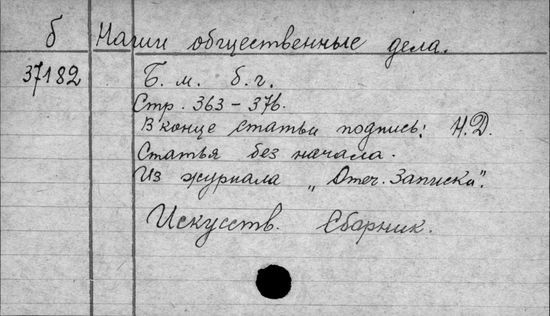 б Наши общественные дела.
37182 Б. м. б. г.
Стр. 363-376.
В конце статьи подпись: Н.Д.
Статья без начала.
Из журнала "Отеч. Записки".
Искусств. Сборник.